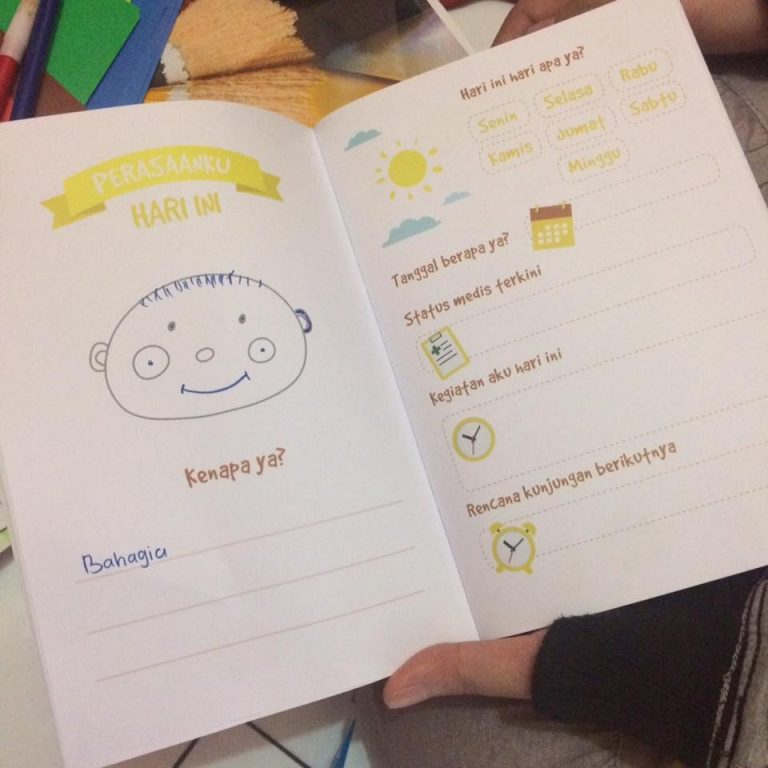 PERASAANKU
HARI INI
Kenapa ya?
Bahagia
Hari ini hari apa ya?
Senin Selasa Rabu
Kamis Jumat Sabtu
Minggu
Tanggal berapa ya?
Status medis terkini
Kegiatan aku hari ini
Rencana kunjungan berikutnya